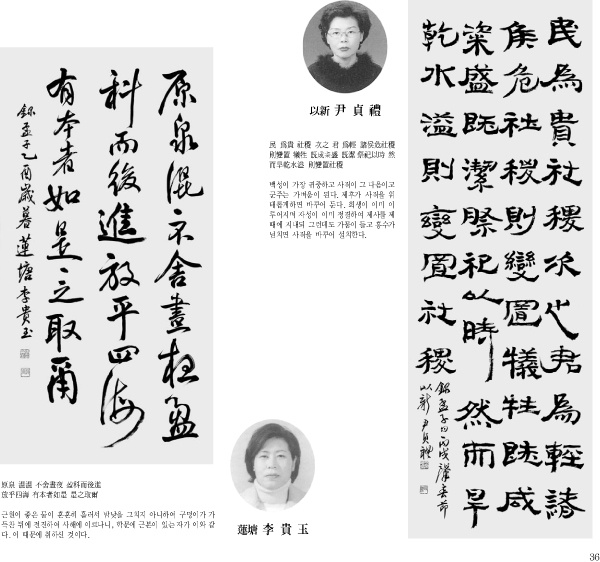 原泉混不舍晝夜盈
科而後進放乎四海
有本者如是之取爾
錄孟子乙酉歲暮蓮塘李貴玉
原泉 混混 不舍晝夜 盈科而後進
放乎四海 有本者如是 是之取爾
근원이 좋은 물이 혼혼히 흘러서 밤낮을 그치지 아니하여 구멍이가 가
득찬 뒤에 전진하여 사해에 이르나니, 학문에 근본이 있는자가 이와 같
다. 이 때문에 취하신 것이다.
蓮塘 李貴玉
以新 尹貞禮
民 爲貴 社稷 次之 君 爲輕 諸侯危社稷
則變置 犧牲 旣成 粢盛 旣潔 祭祀以時 然
而旱乾水溢 則變置社稷
백성이 가장 귀중하고 사직이 그 다음이고
군주는 가벼움이 된다. 제후가 사직을 위
태롭게하면 바꾸어 둔다. 희생이 이미 이
루어지며 자성이 이미 정결하여 제사를 제
때에 지내되 그런데도 가뭄이 들고 홍수가
넘치면 사직을 바꾸어 설치한다.
民爲貴社稷次之君爲輕諸
侯危社稷則變置犧牲旣成
粢盛旣潔祭祀以時然而旱
乾水溢則變置社稷
錄孟子句丙戌肇春節
以新尹貞禮
36